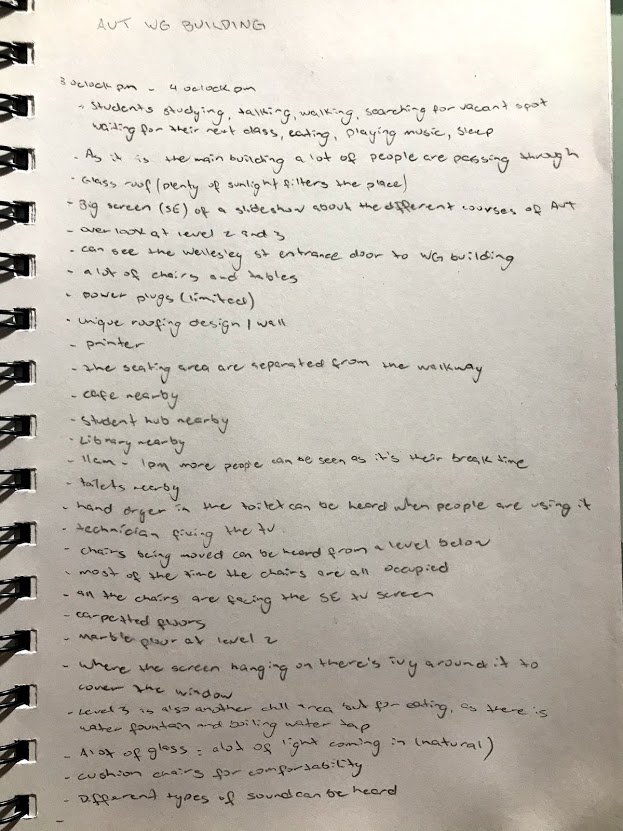 AUT WG BUILDING
3 oclock pm - 4 oclock pm
- Students studying, talking, walking, searching for vacant spot
waiting for their next class, eating, playing music, sleep
- As it is the main building a lot of people are passing through
- Glass roof (plenty of sunlight filters the place)
- Big screen (SE) of a slideshow about the different courses of AUT
- over look at level 2 and 3
- can see the Wellesley st entrance door to WG building
- a lot of chairs and tables
- power plugs (limited)
- unique roofing design / wall
- printer
- the seating area are separated from the walkway
- cafe nearby
- Student hub nearby
- Library nearby
- 11am - 1pm more people can be seen as it's their break time
- toilets nearby
- hand dryer in the toilet can be heard when people are using it
- technician fixing the tv.
- chairs being moved can be heard from a level below
- most of the time the chairs are all occupied
- all the chairs are facing the SE tv screen
- carpetted floors
- marble floor at level 2
- where the screen hanging on there's ivy around it to
cover the window
- Level 3 is also another chill area but for eating, as there is
water fountain and boiling water tap
- Alot of glass = alot of light coming in (natural)
- cushion chairs for comfortability
- Different types of sound can be heard
-